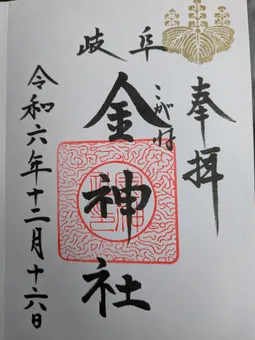 奉拝
岐阜
金神社
こがね
令和六年十二月十六日